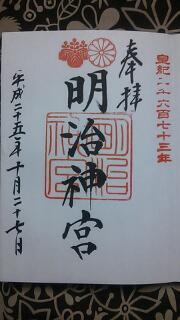 皇紀二千六百七十三年
奉拝
明治神宮
明治神宮
平成二十五年十月二十七日